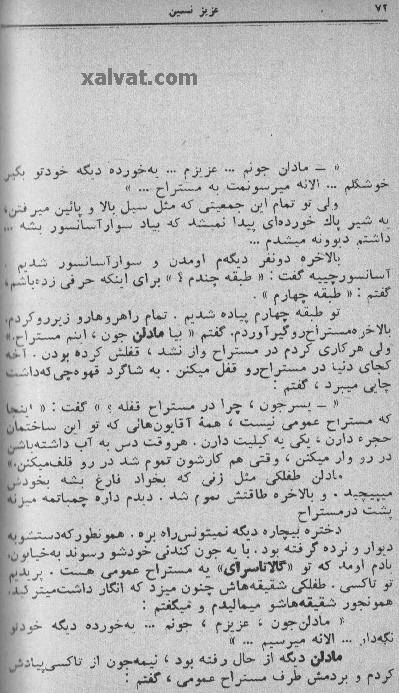 ۷۲
عزیز نسین
xalvat.com
« – مادلن جونم ... عزیزم ... یه‌خورده دیگه خودتو بگیر
خوشگلم ... الانه میرسونمت به مستراح ... »
ولی تو تمام این جمعیتی که مثل سیل بالا و پائین میرفتن،
یه شیر پاك خورده‌ای پیدا نمیشد که بیاد سوار آسانسور بشه ...
داشتم دیوونه میشدم ...
بالاخره دونفر دیگه‌م اومدن و سوار آسانسور شدیم .
آسانسورچییه گفت : « طبقه چندم ؟ » برای اینکه حرفی زده‌باشم،
گفتم : « طبقه چهارم » .
تو طبقه چهارم پیاده شدیم . تمام راهروهارو زیرروکردم.
بالاخره‌مستراح‌روگیرآوردم. گفتم « بیا مادلن جون ، اینم مستراح.»
ولی هرکاری کردم در مستراح واز نشد ، قفلش کرده بودن . آخه
کجای دنیا در مستراح‌رو قفل میکنن . به شاگرد قهوه‌چی که‌داشت
چایی میبرد ، گفتم :
« – پسرجون ، چرا در مستراح قفله ؟ » گفت : « اینجا
که مستراح عمومی نیست ، همهٔ آقایون‌هائی که تو این ساختمان
حجره دارن ، یکی یه کیلیت دارن . هروقت دس به آب داشته‌باشن
در رو وار میکنن ، وقتی هم کارشون تموم شد در رو قلف‌میکنن.»
مادلن طفلکی مثل زنی که بخواد فارغ بشه بخودش
میپیچید . و بالاخره طاقتش تموم شد . دیدم داره چمباتمه میزنه
پشت درمستراح
دختره بیچاره دیگه نمیتونس‌راه بره . همونطورکه‌دستشو به
دیوار و نرده گرفته بود . با یه جون کندنی خودشو رسوند به‌خیابون.
یادم اومد که تو «گالاتاسرای» یه مستراح عمومی هست . پریدیم
تو تاکسی . طفلکی شقیقه‌هاش چنون میزد که انگار داشت‌میترکید.
همونجور شقیقه‌هاشو میمالیدم و میگفتم :
« مادلن‌جون ، عزیزم ، جونم ... یه‌خورده دیگه خودتو
نگه‌دار ... الانه میرسیم ... »
مادلن دیگه از حال رفته بود ، نیمه‌جون از تاکسی‌پیادش
کردم و بردمش طرف مستراح عمومی ، گفتم :